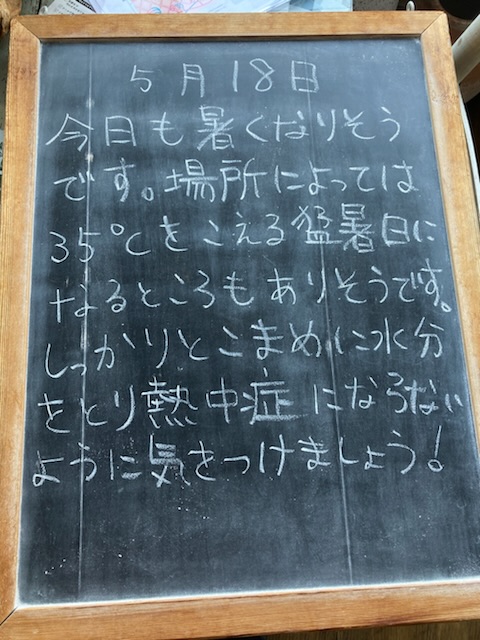 5月18日
今日も暑くなりそう
です。場所によっては
35℃をこえる猛暑日に
なるところもありそうです。
しっかりとこまめに水分
をとり熱中症にならない
ように気をつけましょう!